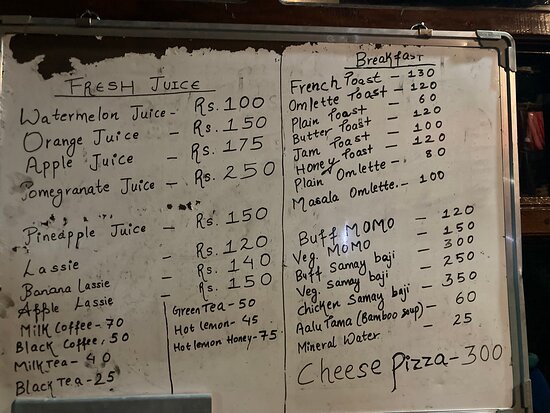 FRESH JUICE
Watermelon Juice - Rs. 100
Orange Juice - Rs. 150
Apple Juice - Rs. 175
Pomegranate Juice - Rs. 250
Pineapple Juice - Rs. 150
Lassie - Rs. 120
Banana Lassie - Rs. 140
Apple Lassie - Rs. 150
Milk Coffee - 70
Black Coffee, 50
Milk Tea - 40
Black Tea - 25
Green Tea - 50
Hot lemon - 45
Hot lemon Honey - 75
Breakfast
French Toast - 130
Omlette Toast - 120
Plain Toast - 60
Butter Toast - 120
Jam Toast - 100
Honey Toast - 120
Plain Omlette - 80
Masala Omlette. - 100
Buff MOMO - 120
Veg. MOMO - 150
Buff Samay baji - 300
Veg. Samay baji - 250
chicken Samay baji - 350
Aalu Tama (Bamboo soup) - 60
Mineral Water - 25
Cheese Pizza - 300